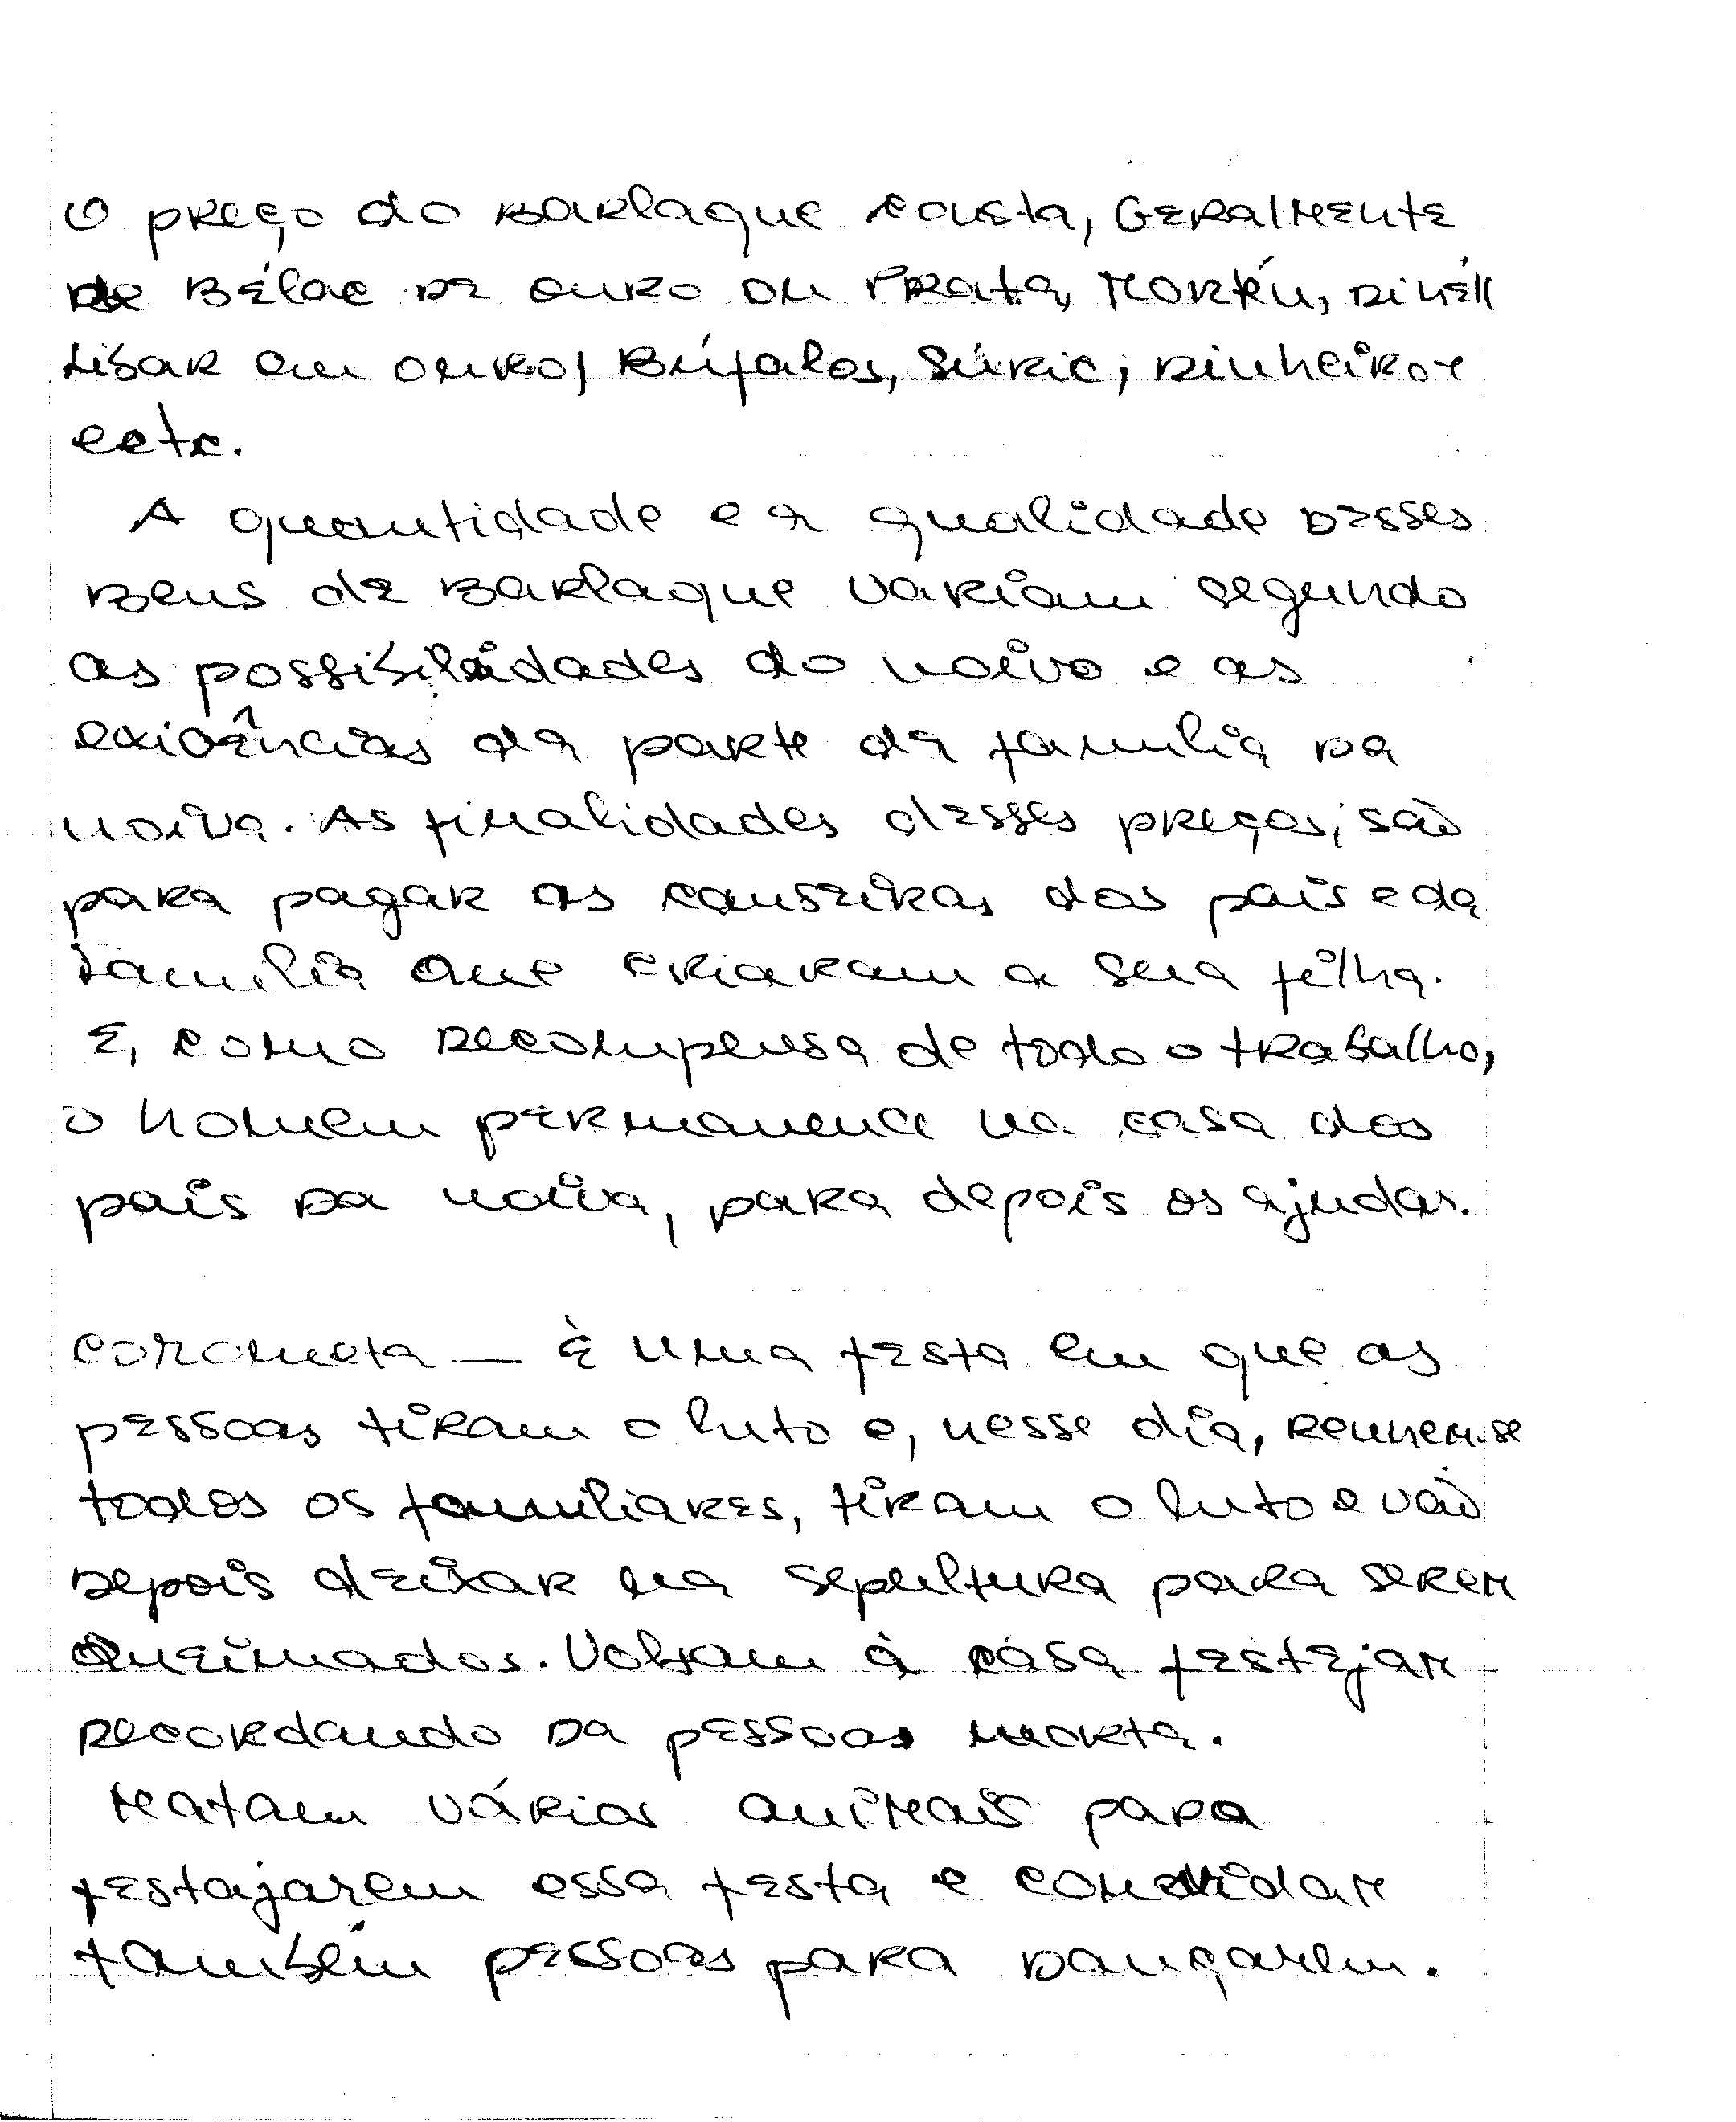 O preço do Barlaque consta, Geralmente
de Bélac de ouro ou Prata, Mortén,
Lisar em ouro, Búfalos, Súric, Dinheiro e
ectc.
A quantidade e a qualidade desses
Bens de Barlaque variam segundo
as possibilidades do noivo e as
exigências da parte da familia da
noiva. As finalidades desses preços, são
para pagar as canseiras dos pais e da
Familia que criaram a sua filha.
E, como recompensa de todo o trabalho,
o homem permanence na casa dos
pais da noiva, para depois os ajudar.
Corcmeta — È uma festa em que as
pessoas tiram o luto e, nesse dia, reunem-se
todos os familiares, tiram o luto e vão
depois deixar na sepultura para serem
Queimados. Voltam à casa festejam
recordando da pessoas morta.
Matam vários animais para
festajarem essa festa e convidam
também pessoas para dançarem.